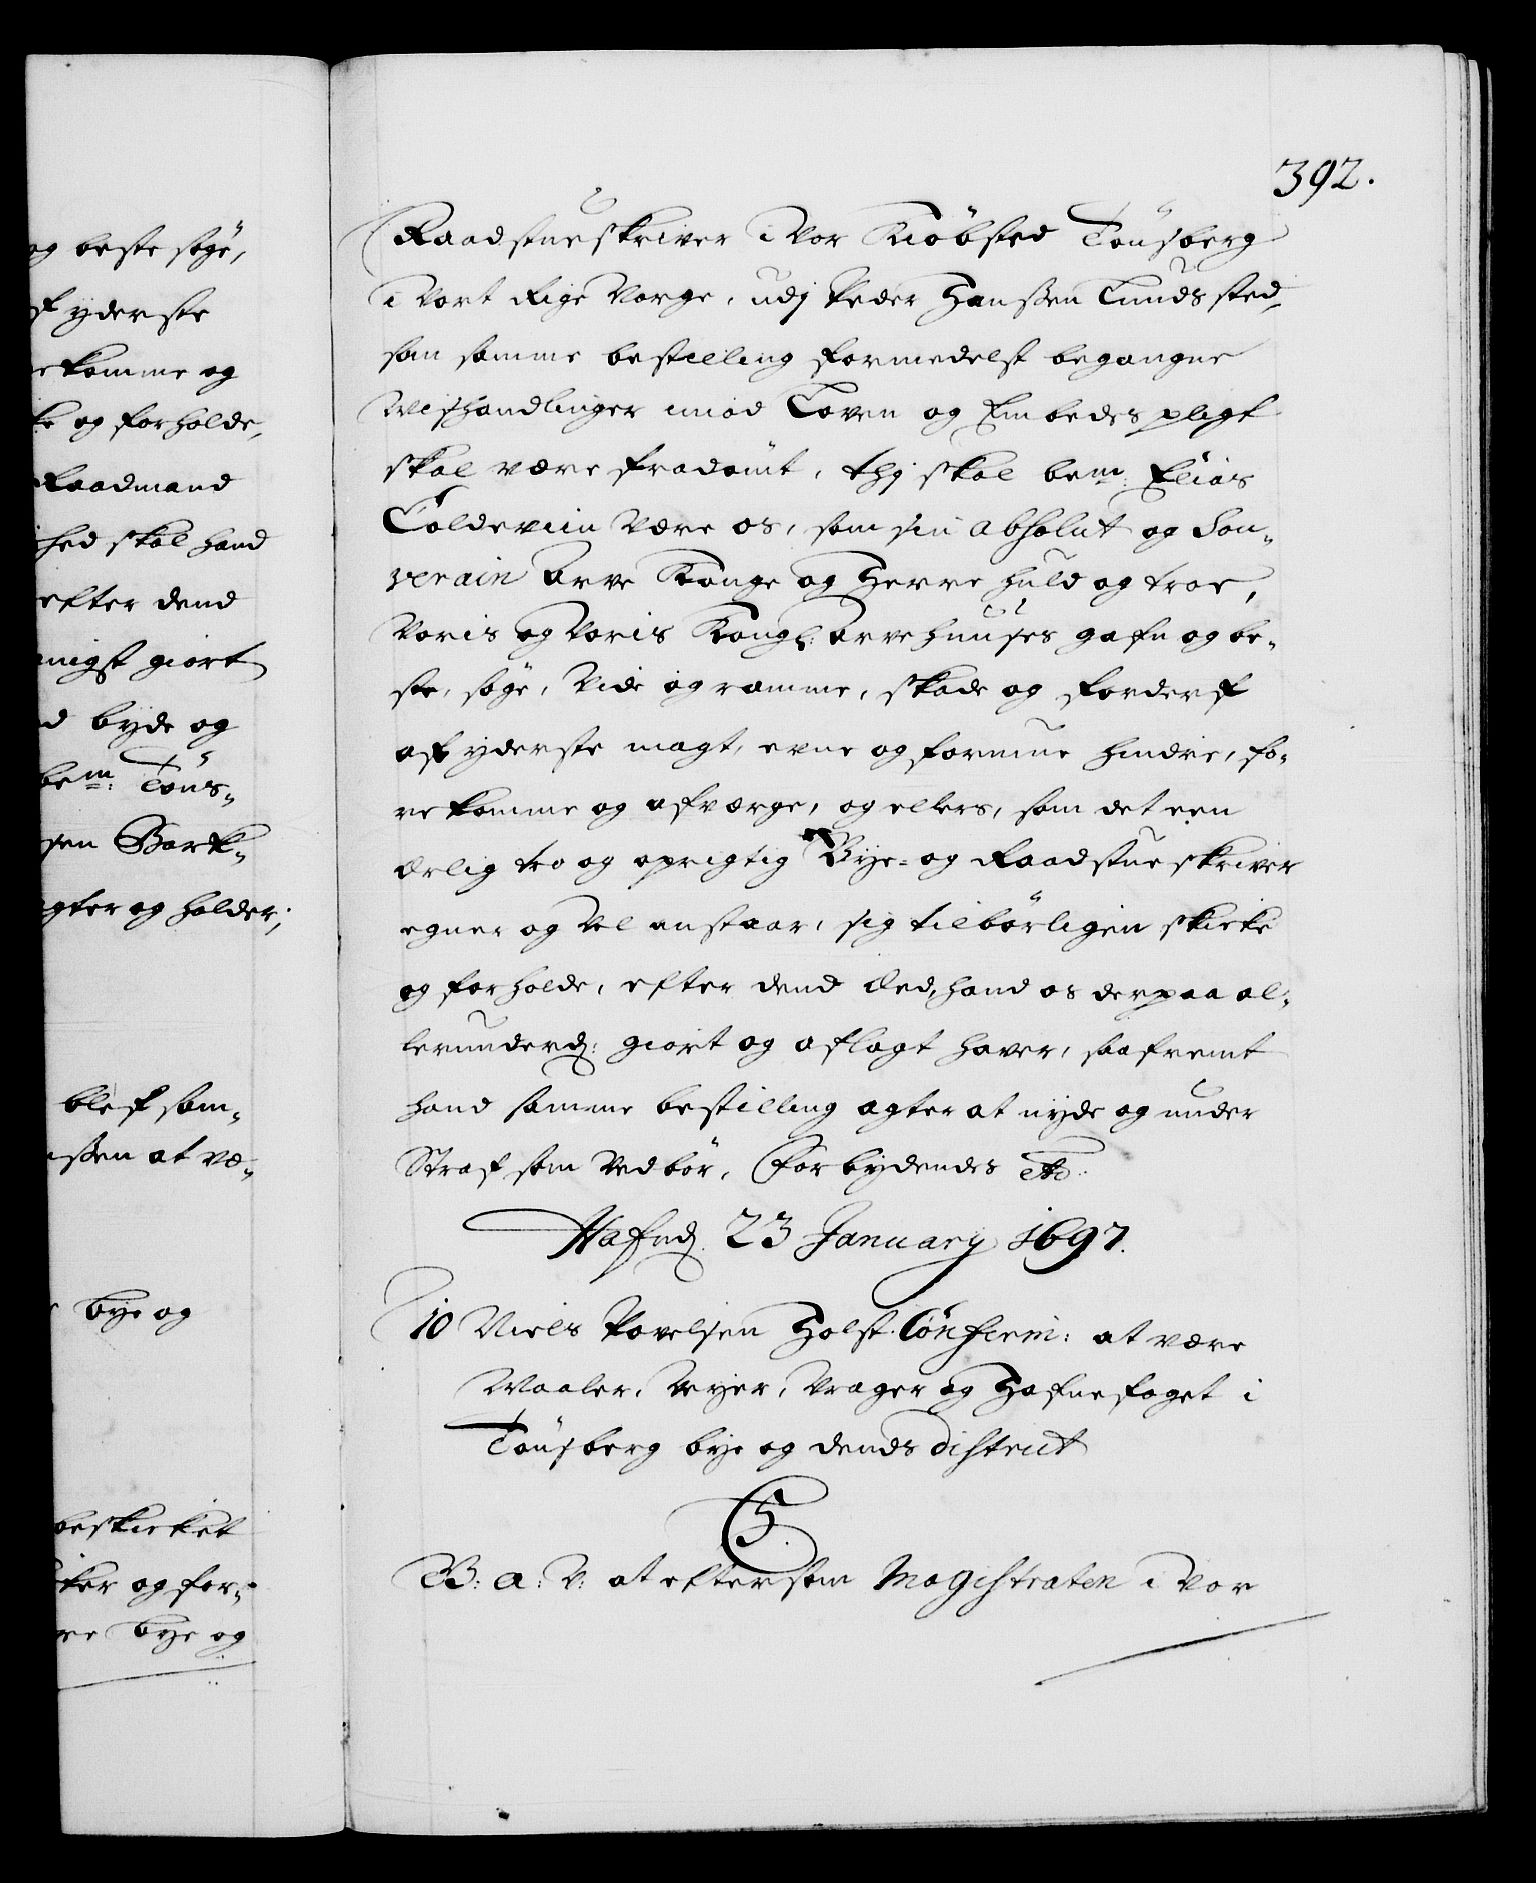 392.
og beste söge,
yderste
komme og
og forholde,
Raadmand
hed skal hand
efter dend
nigst giort
byde og
bem: Töns-
sen Bark-
gter og holder;
blef sam-
nssen at væ-
bye og
beskicket
og for-
re bye og
Raadstueskriver i Vor Kiöbsted Tönsberg
i Vort Rige Norge, udj Peder Hanssen Lunds sted,
som samme bestilling formedelst begangne
Mishandlinger imod Loven og Embedes pligt
skal være fradömt, thj skal bem: Elias
Coldeviin være os, som sin absolut og Sou-
verain Arve Konge og Herre huld og troe,
Voris og Voris Kongl: Arvehuuses gafn og be-
ste, söge, Vide og ramme, skade og forderf
af yderste magt, evne og formue hindre, fo-
rekomme og afværge, og ellers, som det een
ærlig tro og oprigtig Bye- og Raadstueskriver
egner og Vel anstaar, sig tilbörligen skicke
og forholde, efter dend Æed, hand os derpaa al-
lerunderd: giort og aflagt haver, saafremt
hand samme bestilling agter at nyde og under
Straf som Vedbör, Forbydendes etc:
Hafnd. 23 January 1697.
10 Niels Povelsen Holst Confirm: at være
Maaler, Vejer, Vrager og Hafnefoget i
Tönsberg bye og dends district
C5.
G: a: V: at eftersom Magistraten i Vor